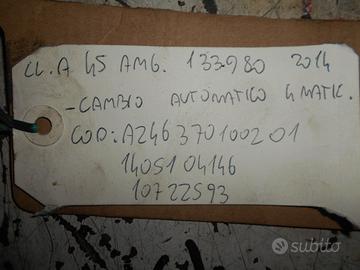 CL.A 45 AMG. 133980 2014
- CAMBIO AUTOMATICO 4 MATIC.
COD: A246 370100201
1405104146
10722593
subito